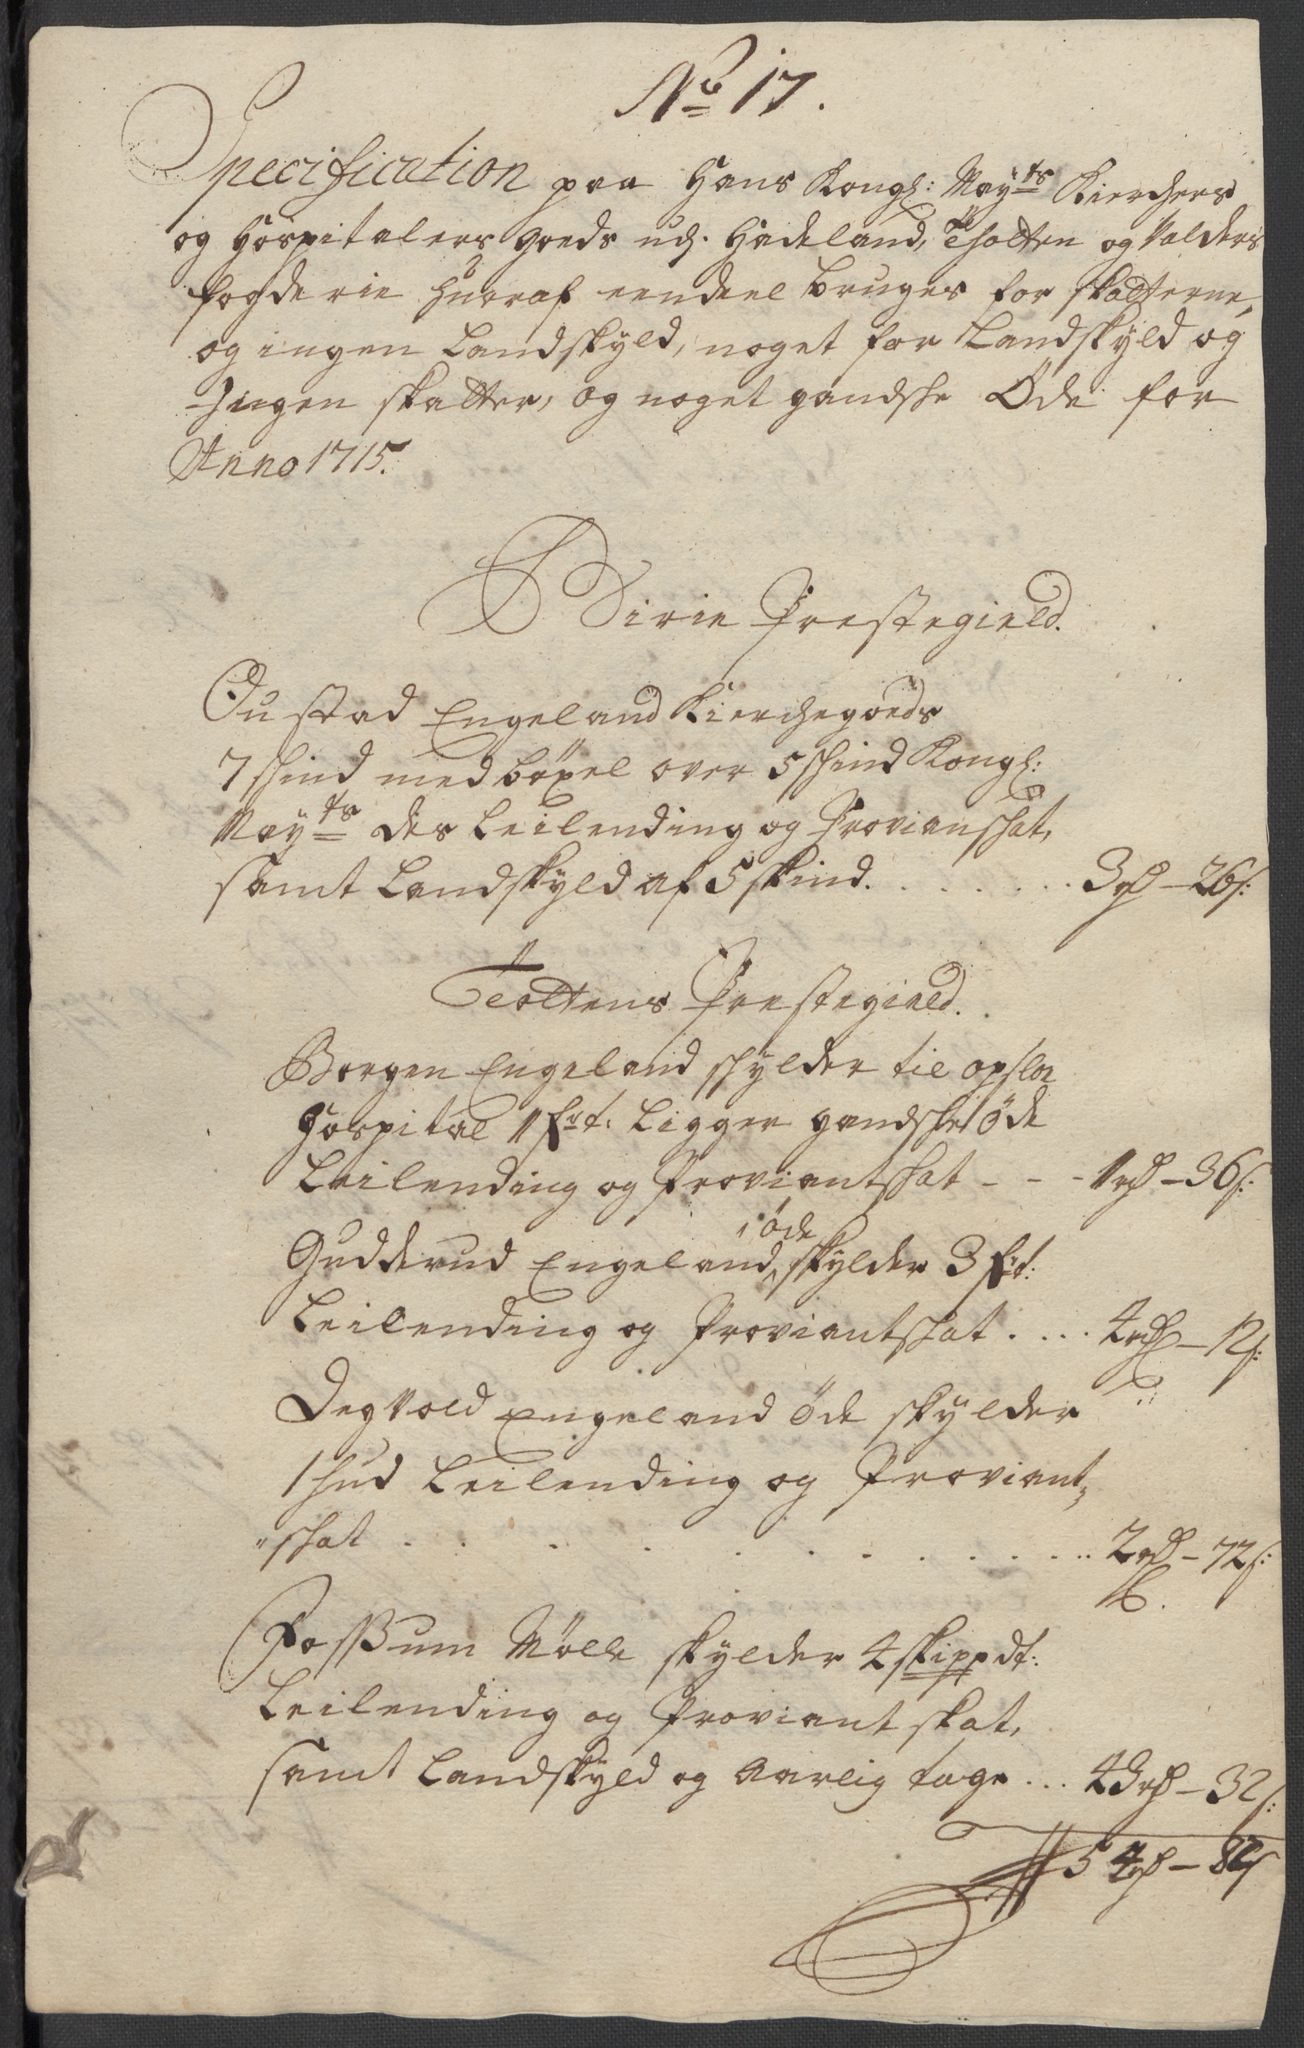 No 17.
Specification paa Hans Kongl: Mayts Kierchers
og Hospitalers goeds udj. Hadeland, Thotten og Valders
fogderie huoraf eendeel bruges for skatterne,
og ingen Landskyld, noget for Landskyld og
Ingen skatter, og noget gandshe Öde for
Anno 1715.
Birie Præstegield.
Oustad Engeland Kierchegoeds
7 skind med böxel over 5 skind Kongl:
Mayts des Leilending og Proviantskat,
samt Landskyld af 5 skind. . . . . . . 3 rd - 26 s:
Tottens Præstegield.
Borgen Engeland skylder til opsloe
Hospital 1 frt: Ligger gandshe öde
Leilending og Proviantskat - - - 1 rd - 36 s:
Gudderud Engeland, öde skylder 3 frt:
Leilending og Proviantskat . . . . 4 rd - 12 s:
Degvold Engeland öde skylder
1 hud Leilending og Proviant
skat . . . . . . . . . . 2 rd - 72 s:
Fossum Mölle skylder 4 skippdt:
Leilending og Proviant skat,
samt Landskyld og Aarlig tage ... 43 rd - 32 s:
54 rd - 82 s